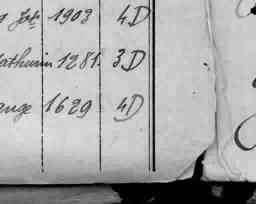 Job: 1903 4D
Mathurin 1281. 3D
1629 4D